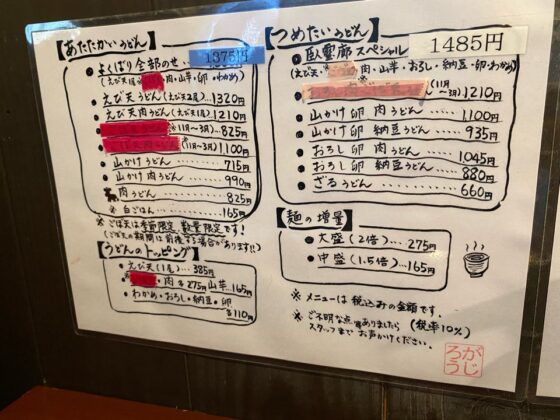 【あたたかいうどん】
・よくばり全部のせ… 1375円
(えび天1尾・肉・山芋・卵・わかめ)
・えび天うどん(えび天2尾)…1320円
・えび天肉うどん(えび天1尾)…1210円
※(11月〜3月)…825円
※(11月〜3月)…1100円
・山かけうどん………715円
・山かけ肉うどん………990円
肉うどん………825円
・白ごはん………165円
※ごぼ天は季節限定、数量限定です!
(ごぼ天の期間は前後する場合があります!!)
【うどんのトッピング】
・えび天(1尾)…385円
・肉 各275円 山芋…165円
・わかめ・おろし・納豆・卵
各110円
【つめたいうどん】
・臥靈廊スペシャル 1485円
(えび天・肉・山芋・おろし・納豆・卵・わかめ)
(11月〜3月)1210円
・山かけ卵肉うどん………1100円
・山かけ卵納豆うどん………935円
・おろし卵肉うどん………1045円
・おろし卵納豆うどん………880円
・ざるうどん………660円
【麺の増量】
・大盛(2倍)…275円
・中盛(1.5倍)…165円
※メニューは税込みの金額です。
(税率10%)
※ご不明な点等ありましたら
スタッフまでお声かけください。
がじろう